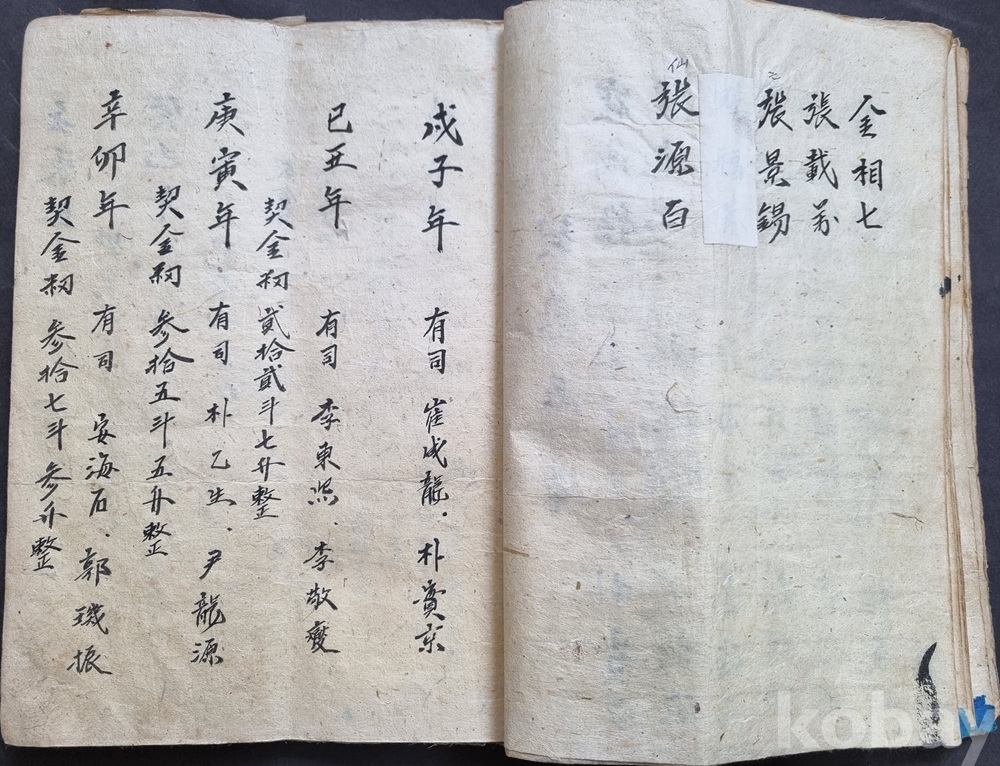 金相七
張載万
張景錫
仙
張源百
戊子年 有司 崔成龍. 朴賛京
己丑年 有司 李東熙. 李敬燮
契金籾 貳拾貳斗七升整
庚寅年 有司 朴乙生. 尹龍源
契金籾 参拾五斗五升整
辛卯年 有司 安海石. 郭璣振
契金籾 参拾七斗参升整
kobay